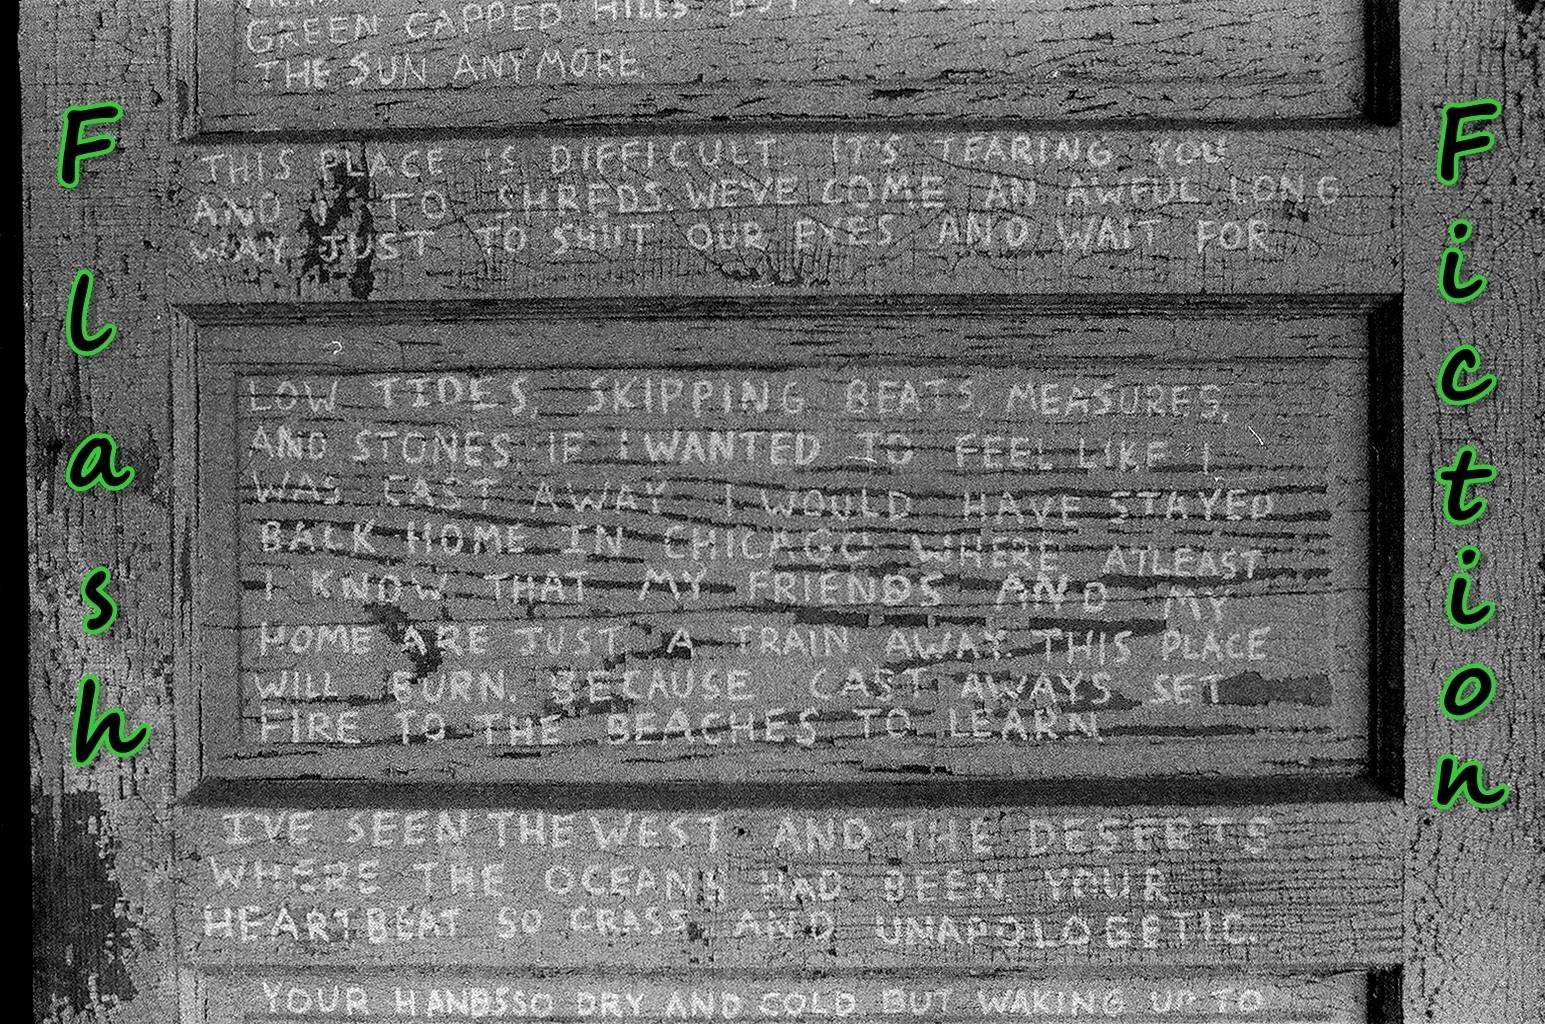 GREEN CAPPED HILLS BUT YOU
THE SUN ANYMORE.
THIS PLACE IS DIFFICULT IT'S TEARING YOU
AND I TO SHREDS. WE'VE COME AN AWFUL LONG
WAY JUST TO SHUT OUR EYES AND WAIT FOR
LOW TIDES, SKIPPING BEATS, MEASURES,
AND STONES IF I WANTED TO FEEL LIKE I
WAS CAST AWAY I WOULD HAVE STAYED
BACK HOME IN CHICAGO WHERE ATLEAST
I KNOW THAT MY FRIENDS AND MY
HOME ARE JUST A TRAIN AWAY THIS PLACE
WILL BURN. BECAUSE CAST AWAYS SET
FIRE TO THE BEACHES TO LEARN
I'VE SEEN THE WEST AND THE DESERTS
WHERE THE OCEANS HAD BEEN. YOUR
HEARTBEAT SO CRASS AND UNAPOLOGETIC.
YOUR HANDS SO DRY AND COLD BUT WAKING UP TO
Flash
Fiction